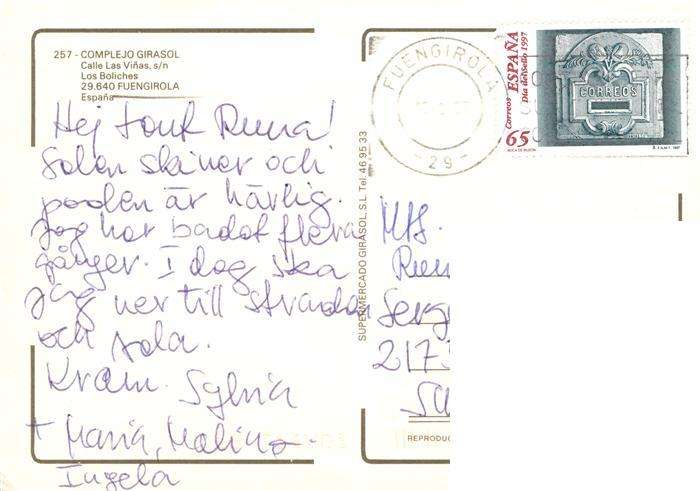 257 - COMPLEJO GIRASOL
Calle Las Viñas, s/n
Los Boliches
29.640 FUENGIROLA
España
Hej tant Runa!
Solen skiner och
poolen är härlig.
Jag har badat flera
gånger. I dag ska
jag ner till stranden
och sola.
Kram. Sylvia
+ Maria, Malin o
Ingela
SUPERMERCADO GIRASOL, S.L. Tel. 46 95 33
FUENGIROLA
29
Correos ESPAÑA
Día del Sello 1997
65
CORREOS
Run
Serg
217
REPRODUC